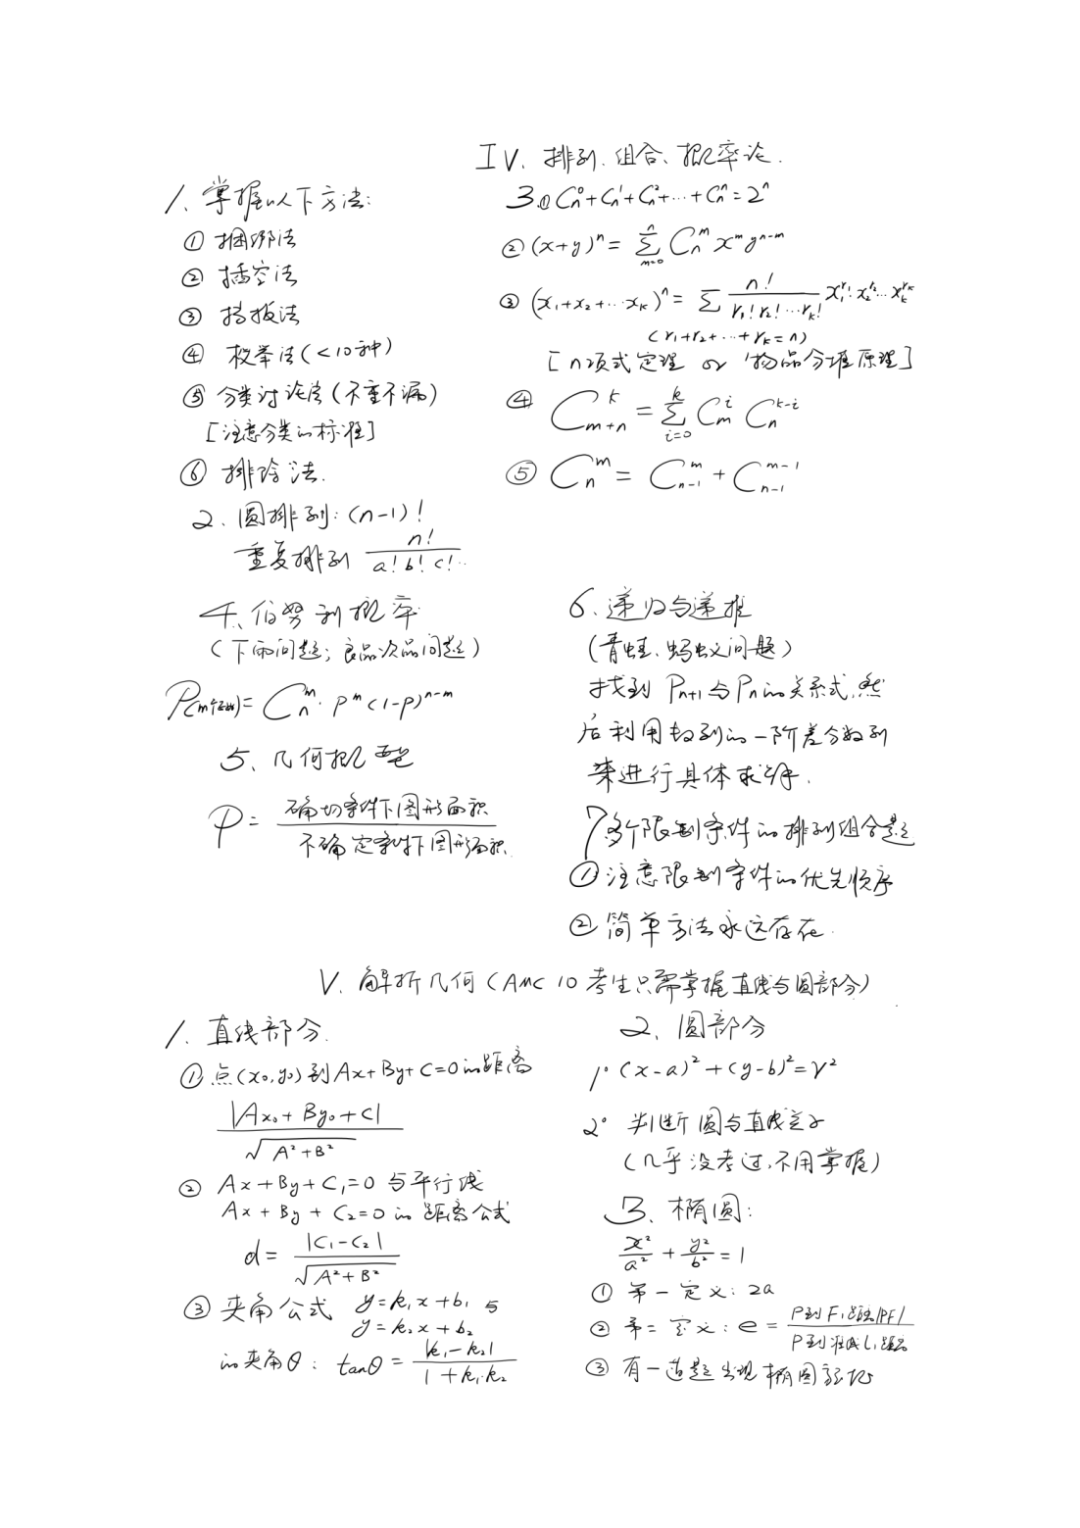 IV. 排列、组合、概率论.
1. 掌握以下方法:
① 捆绑法
② 插空法
③ 挡板法
④ 枚举法(<10种)
⑤ 分类讨论法(不重不漏)
[注意分类的标准]
⑥ 排除法.
2. 圆排列: (n-1)!
重复排列 n! / a! b! c!..
3. ① Cn^0 + Cn^1 + Cn^2 + ··· + Cn^n = 2^n
② (x+y)^n = ∑_{m=0}^{n} C_n^m x^m y^{n-m}
③ (x₁+x₂+···x_k)^n = ∑ n! / r₁! r₂! ··· r_k! x₁^{r₁} x₂^{r₂} ··· x_k^{r_k}
(r₁+r₂+···+r_k=n)
[n项式定理 or 物品分堆原理]
④ C_{m+n}^k = ∑_{i=0}^{k} C_m^i C_n^{k-i}
⑤ C_n^m = C_{n-1}^m + C_{n-1}^{m-1}
4. 伯努利概率
(下雨问题; 良品次品问题)
P(m) = C_n^m · p^m (1-p)^{n-m}
5. 几何概型
P = 确切条件下图形面积 / 不确定条件下图形面积
6. 递归与递推
(青蛙、蚂蚁问题)
找到 P_{n+1} 与 P_n 的关系式, 然
后利用数列的一阶差分数列
来进行具体求解.
7. 多个限制条件的排列组合题
① 注意限制条件的优先顺序
② 简单方法永远存在.
V. 解析几何 (AMC 10 考生只需掌握直线与圆部分)
1. 直线部分.
① 点(x₀,y₀)到Ax+By+C=0的距离
|Ax₀+By₀+C| / √A²+B²
② Ax+By+C₁=0 与平行线
Ax+By+C₂=0 的距离公式
d = |C₁-C₂| / √A²+B²
③ 夹角公式 y=k₁x+b₁ 与
y=k₂x+b₂
的夹角θ: tanθ = |k₁-k₂| / 1+k₁·k₂
2. 圆部分
1° (x-a)²+(y-b)²=r²
2° 判断圆与直线关系
(几乎没考过,不用掌握)
3. 椭圆:
x²/a² + y²/b² = 1
① 第一定义: 2a
② 第二定义: e = P到F₁距离|PF| / P到准线l₁距离
③ 有一道题出现椭圆